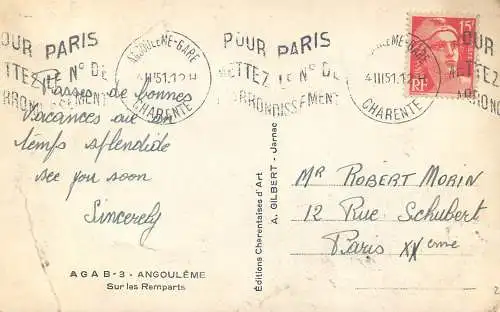 OUR PARIS
ETTEZ LE N° DE
ARRONDISSEMENT
ANGOULÊME-GARE
4.III51.12H
CHARENTE
POUR PARIS
METTEZ LE N° DE
ARRONDISSEMENT
EME-GARE
4.III51.12H
CHARENTE
15F
RF
Passez de bonnes
Vacances
temps splendide
see you soon
Sincerely
AGA B-3 - ANGOULÊME
Sur les Remparts
Éditions Charentaises d'Art
A. GILBERT - Jarnac
MR ROBERT MORIN
12 Rue Schubert
Paris XXème